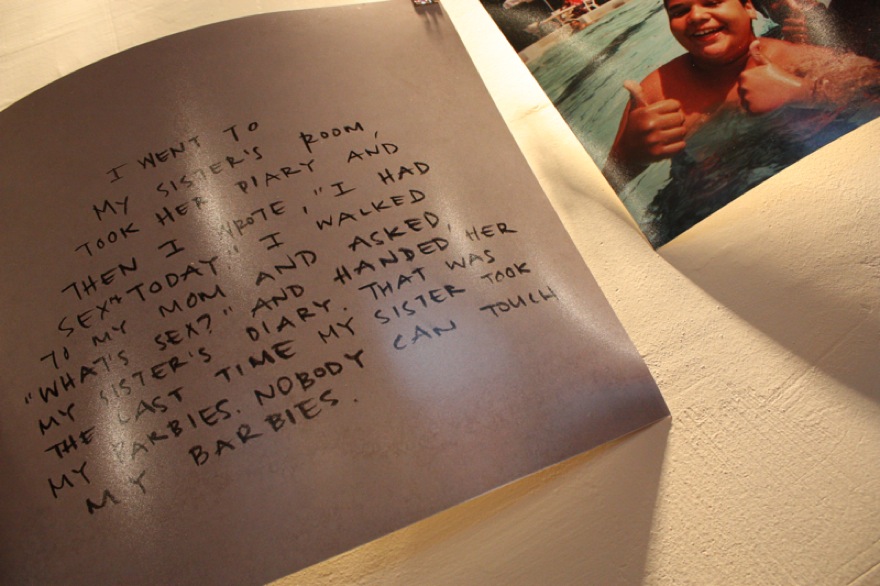 I WENT TO
MY SISTER'S ROOM,
TOOK HER DIARY AND
THEN I WROTE, "I HAD
SEX TODAY." I WALKED
TO MY MOM AND ASKED,
"WHAT'S SEX?" AND HANDED HER
MY SISTER'S DIARY. THAT WAS
THE LAST TIME MY SISTER TOOK
MY BARBIES. NOBODY CAN TOUCH
MY BARBIES.